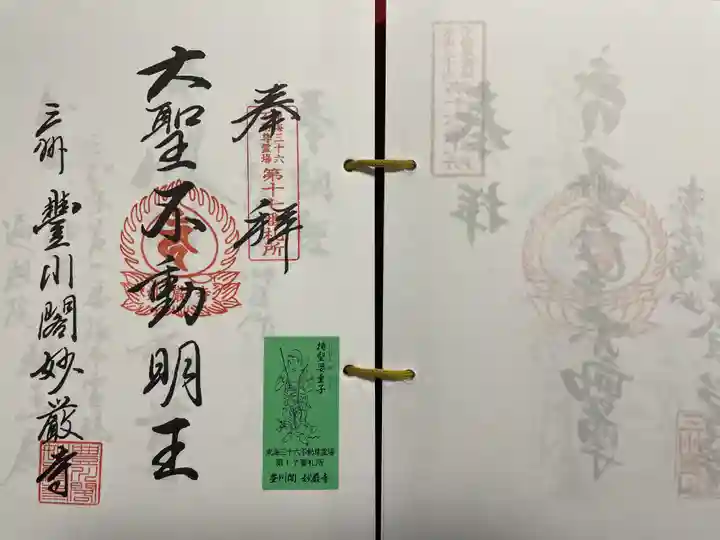 奉拝
東海三十六
不動尊霊場
第十七番札所
大聖不動明王
三州 豊川閣妙厳寺
持堅婆童子
東海三十六不動尊霊場
第17番札所
豊川閣 妙厳寺